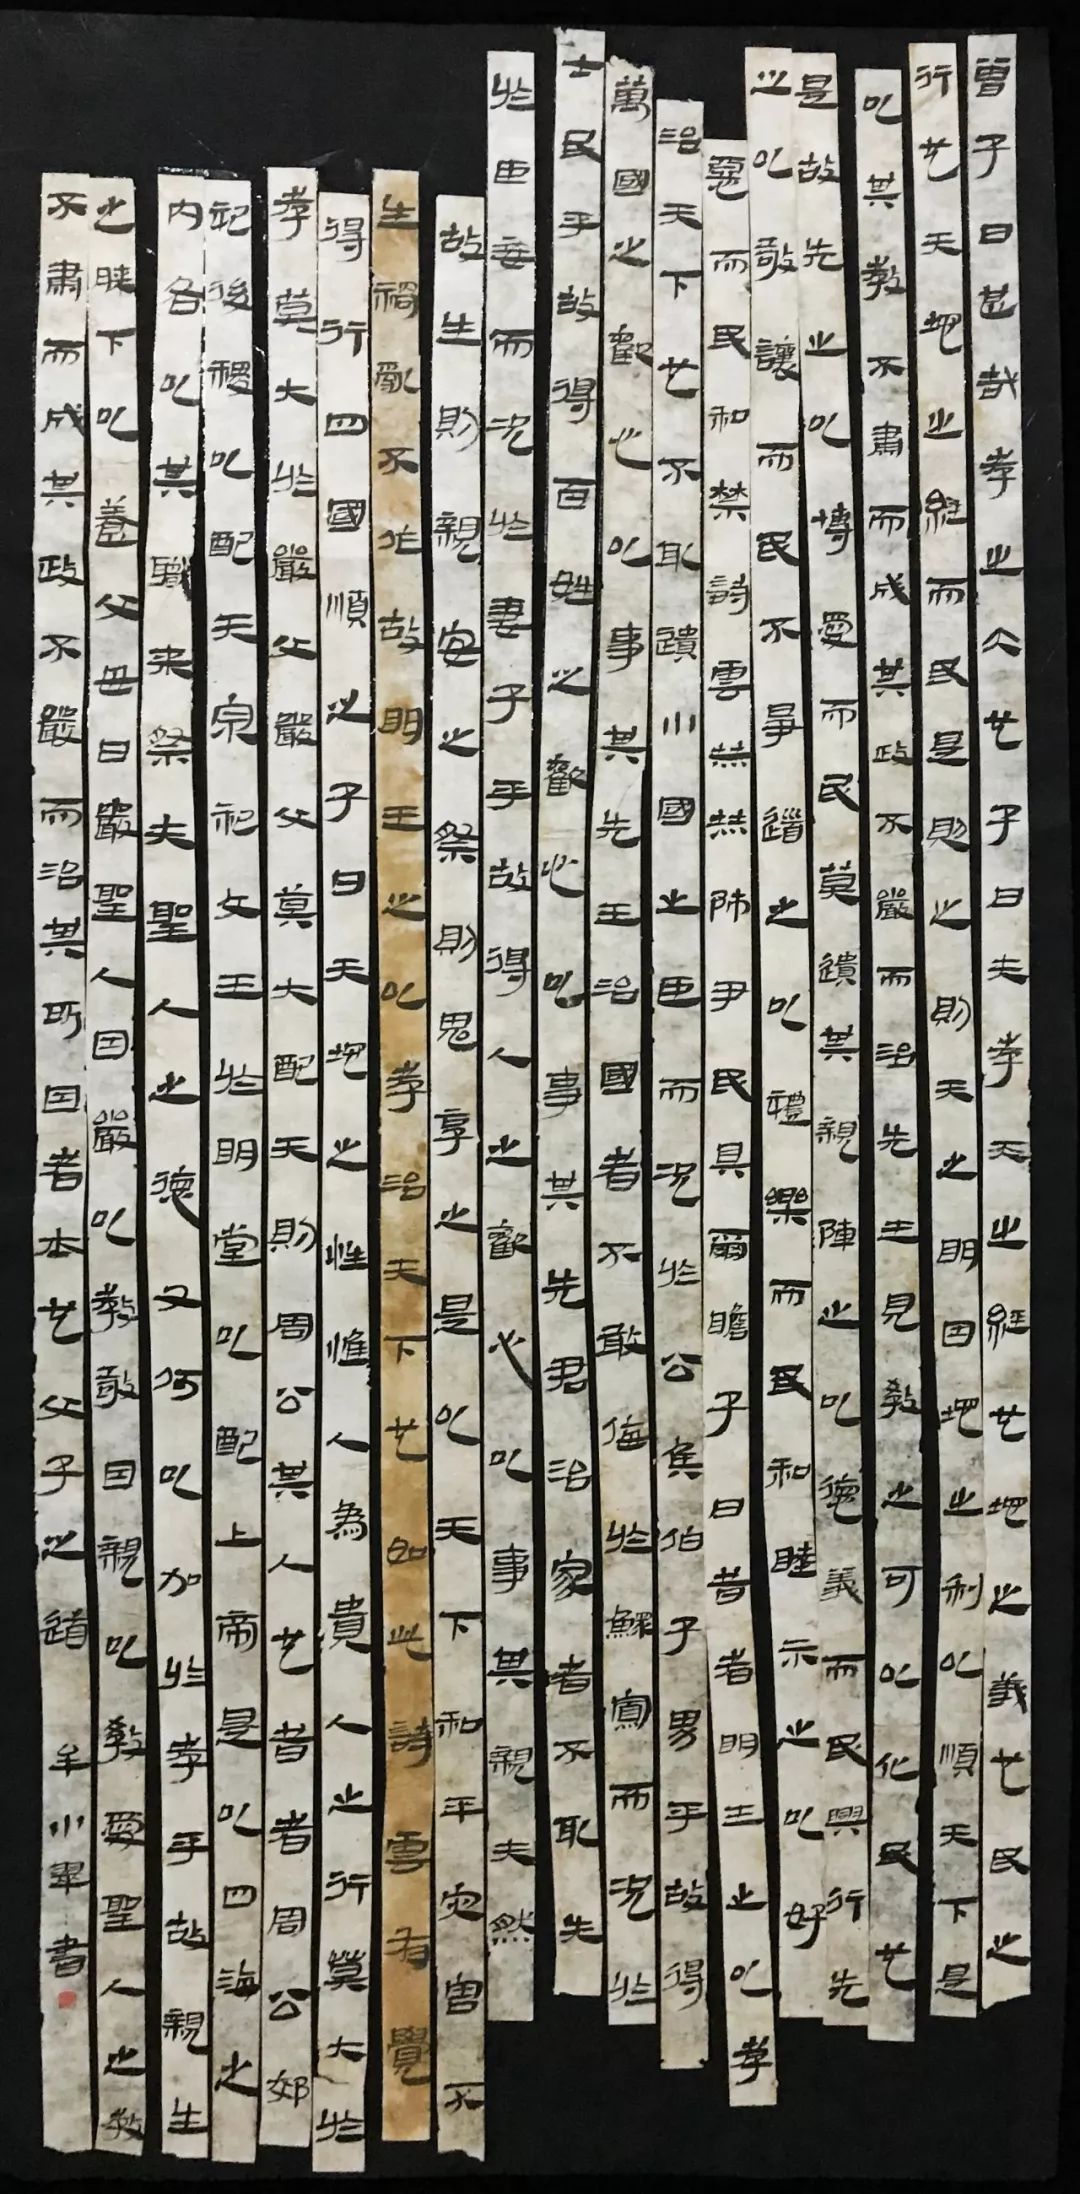 曾子曰甚哉孝之大也子曰夫孝天之經也地之義也民之
行也天地之經而民是則之則天之明因地之利以順天下是
以其教不肅而成其政不嚴而治先王見教之可以化民也
是故先之以博愛而民莫遺其親陳之以德義而民興行先
之以敬讓而民不爭道之以禮樂而民和睦示之以好
惡而民和禁詩雲赫赫師尹民具爾瞻子曰昔者明王之以孝
治天下也不敢遺小國之臣而況於公侯伯子男乎故得
萬國之歡心以事其先王治國者不敢侮於鰥寡而況於
士民乎故得百姓之歡心以事其先君治家者不敢失
於臣妾而況於妻子乎故得人之歡心以事其親夫然
故生則親安之祭則鬼享之是以天下和平災害不
生禍亂不作故明王之以孝治天下也如此詩雲有覺
得行四國順之子曰天地之性惟人為貴人之行莫大於
孝莫大於嚴父嚴父莫大配天則周公其人也昔者周公郊
祀後稷以配天宗祀文王於明堂以配上帝是以四海之
內各以其職來祭夫聖人之德又何以加於孝乎故親生
之膝下以養父母日嚴聖人因嚴以教敬因親以教愛聖人之教
不肅而成其政不嚴而治其所因者本也父子之道 牟小翠書